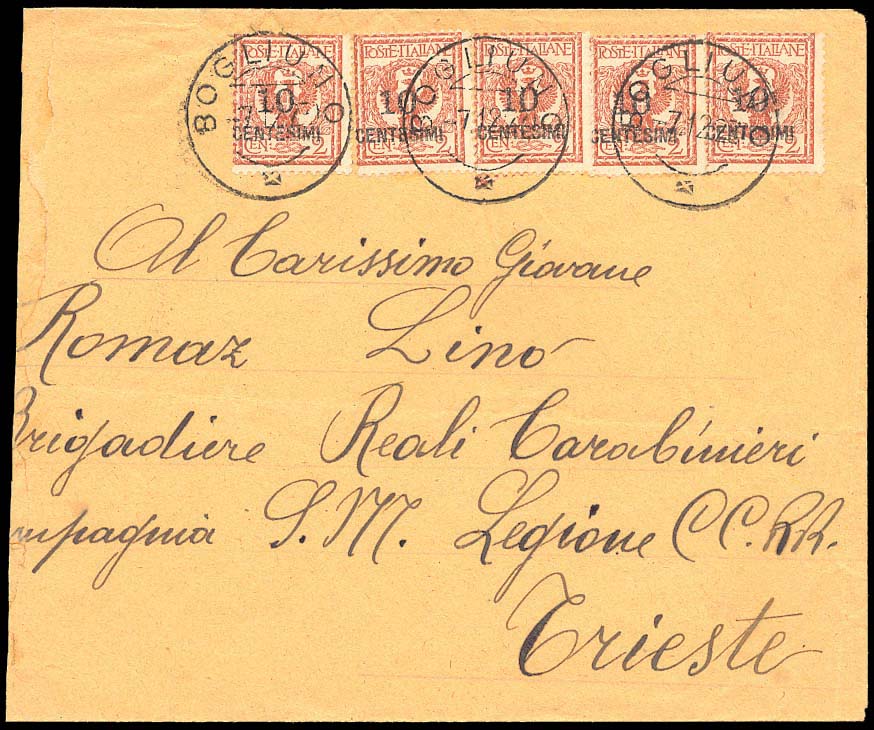 POSTE·ITALIANE POSTE·ITALIANE POSTE·ITALIANE POSTE·ITALIANE POSTE·ITALIANE
10 10 10 10 10
CENTESIMI CENTESIMI CENTESIMI CENTESIMI CENTESIMI
CEN 2 CEN 2 CEN 2 CEN 2 CEN 2
BOGLIUNO BOGLIUNO BOGLIUNO
-7.12.
Al Carissimo Giovane
Romaz Lino
Brigadiere Reali Carabinieri
mpagnia S. M. Legione CC. RR.
Trieste